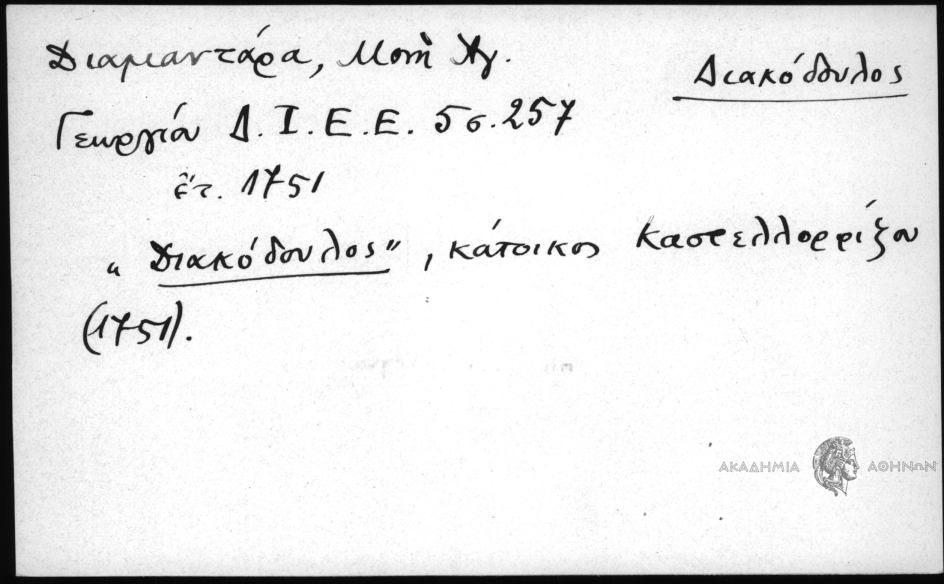 Διακόδουλος
Διαμαντάρα, Μονὴ Ἁγ.
Γεωργίου Δ.Ι.Ε.Ε. 5 σ. 257
ἔτ. 1751
„ Διακόδουλος", κάτοικος Καστελλορρίζου
(1751).
ΑΚΑΔΗΜΙΑ ΑΘΗΝΩΝ